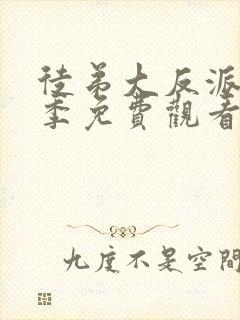 徒弟大反派
季免費觀看
九度不是空間